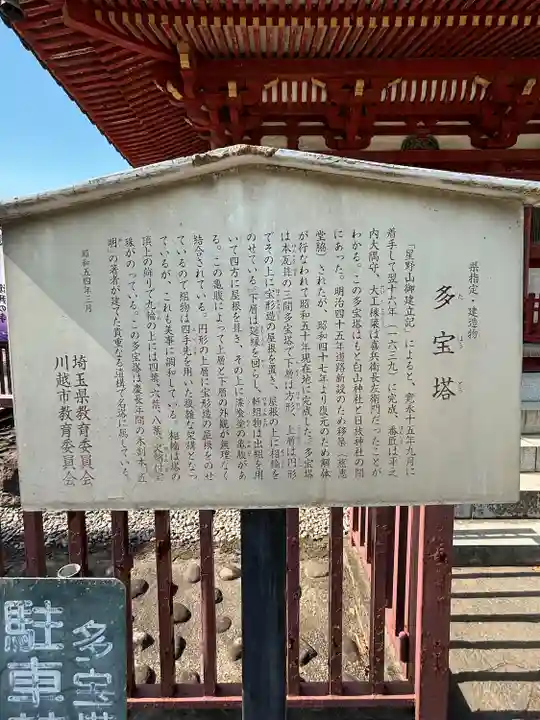 県指定・建造物
多宝塔
「星野山御建立記」によると、寛永十五年九月に
着手して翌十六年（一六三九）に完成、番匠は平之
内大隅守、大工棟梁は喜兵衛長左衛門だったことが
わかる。この多宝塔はもと白山神社と日枝神社の間
にあった。明治四十五年道路新設のため移築（慈恵
堂脇）されたが、昭和四十七年より復元のため解体
が行なわれて昭和五十年現在地に完成した。多宝塔
は本瓦葺の三間多宝塔で下層は方形、上層は円形
でその上に宝形造の屋根を置き、屋根の上に相輪を
のせている。下層は縁をめぐらし、軒組物は出組を用
いて四方に屋根を葺き、その上に漆喰塗の亀腹があ
る。この亀腹によって上層と下層の外観が無理なく
結合されている。円形の上層に宝形造の屋根をのせ
ているので組物は四手先を用いた複雑な架構となっ
ているが、これも美事に調和している。相輪は塔の
頂上の飾りで九輪の上には四葉、六葉、八葉、火焔付宝
珠がのっている。この多宝塔は慶長年間の木割本「匠
明」の著者が建てた貴重なる遺構で名塔に属している
昭和五四年三月
埼玉県教育委員会
川越市教育委員会
多宝塔
駐車